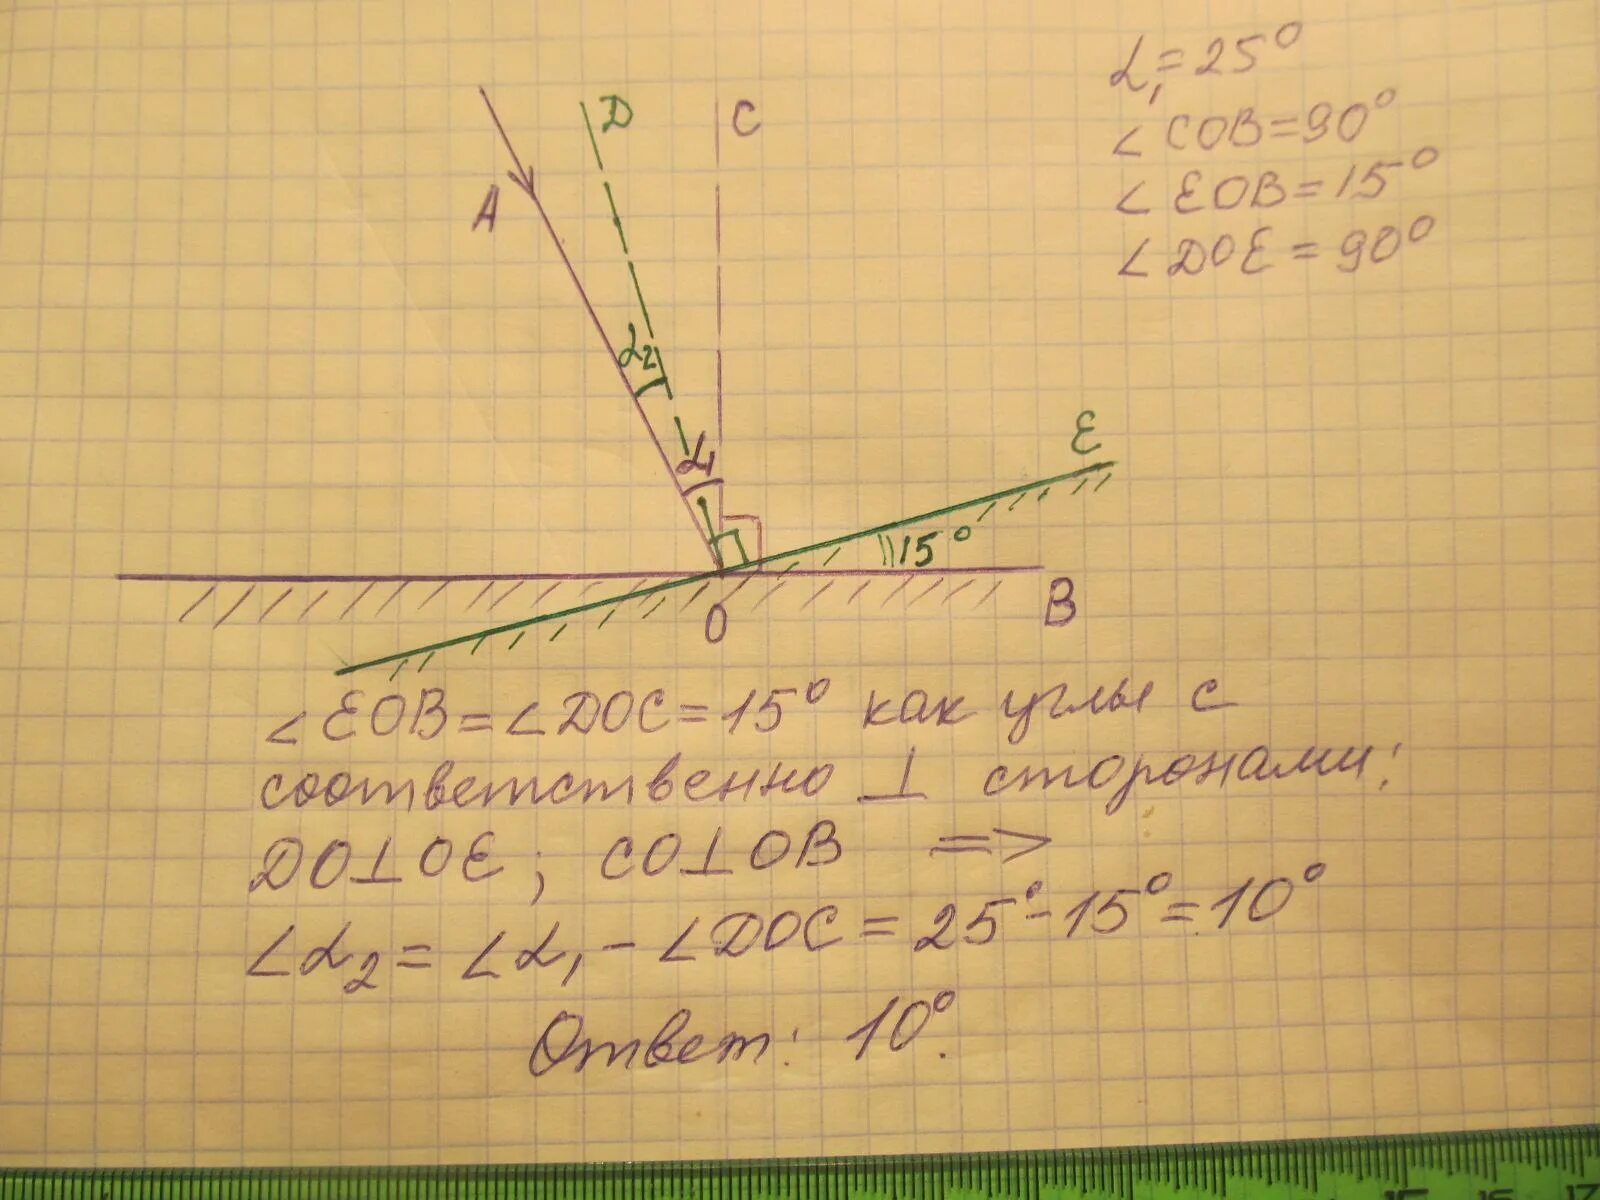 α₁ = 25°
∠ COB = 90°
∠ EOB = 15°
∠ DOE = 90°
D
C
A
α₂
α₁
E
15°
O
B
∠ EOB = ∠ DOC = 15° как углы с
соответственно ⊥ сторонами:
DO⊥OE; CO⊥OB =>
∠α₂ = ∠α₁ - ∠DOC = 25° - 15° = 10°
Ответ: 10°.
15 16 17